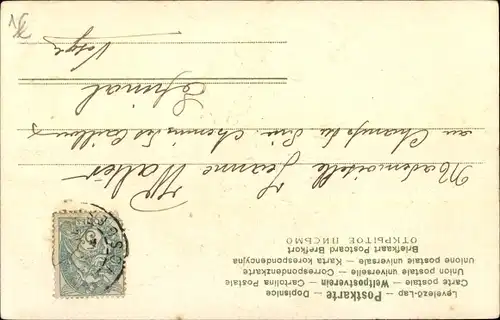 Levelező-Lap — Postkarte — Dopisnice
Carte postale — Weltpostverein — Cartolina Postale
Union postale universelle — Correspondenzkarte
Unione postale universale — Karta korespondencyjna
Briefkaart Postcard Brefkort
ОТКРЫТОЕ ПИСЬМО
Mademoiselle Jeanne Walter
au Champ du Pin chemin des
Epinal
Vosges